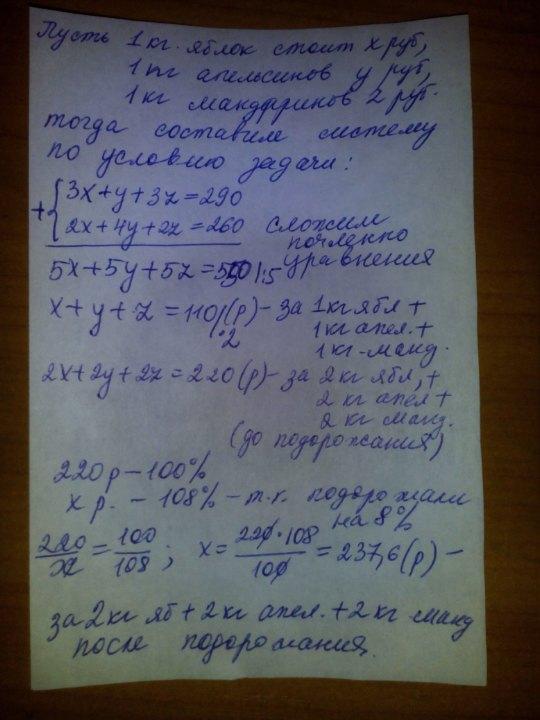 Пусть 1 кг. яблок стоит x руб,
1 кг апельсинов y руб,
1 кг мандаринов z руб.
тогда составим систему
по условию задачи:
+ { 3x + y + 3z = 290
2x + 4y + 2z = 260 сложим
почленно
5x + 5y + 5z = 550 |:5 уравнения
x + y + z = 110 (р) - за 1 кг ябл +
·2 1 кг апел. +
1 кг. манд.
2x + 2y + 2z = 220 (р) - за 2 кг ябл, +
2 кг апел +
2 кг манд.
(до подорожания)
220 р - 100%
x р. - 108% - т.к. подорожали
на 8%
220/x = 100/108 ; x = 220·108/100 = 237,6 (р) -
за 2 кг яб + 2 кг апел. + 2 кг манд
после подорожания.